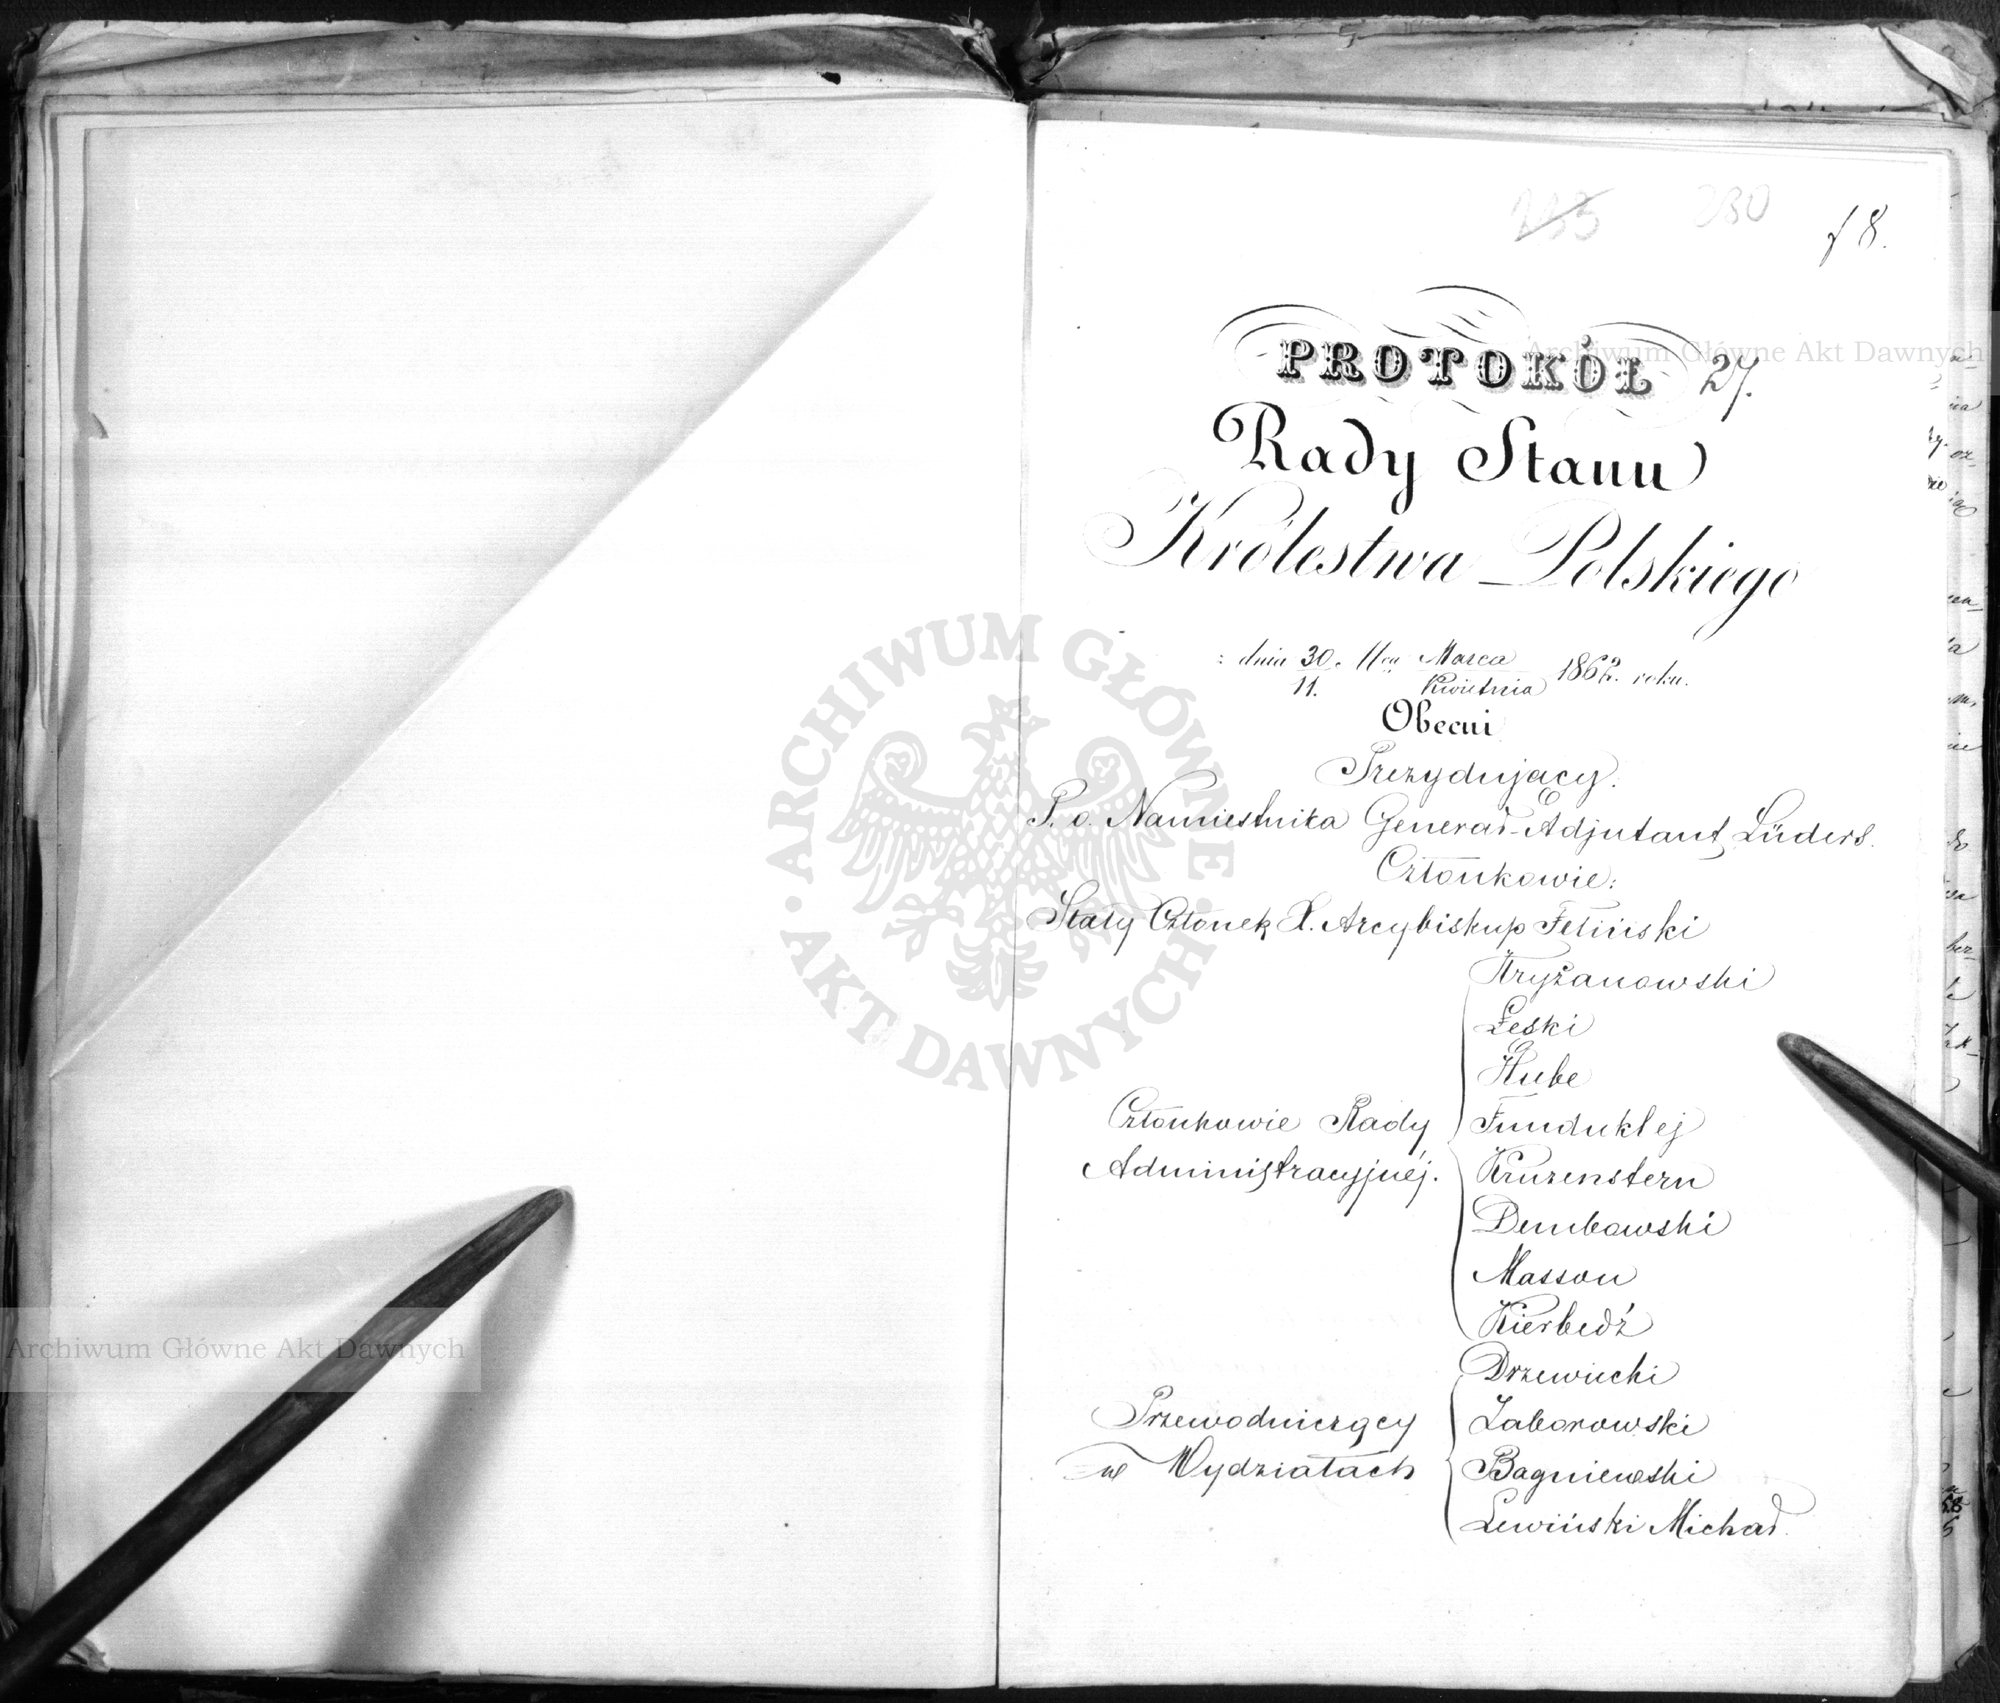 233 230
f 8.
PROTOKÓŁ 27.
Rady Stanu
Królestwa Polskiego
z dnia 30. Marca 1862. roku.
11. Kwietnia
Obecni
Prezydujący:
P. o. Namiestnika Generał-Adjutant Lüders.
Członkowie:
Stały Członek X. Arcybiskup Feliński
Kryżanowski
Łęski
Hube
Członkowie Rady Funduklej
Administracyjnéj. Kruzenstern
Dembowski
Masson
Kierbedź
Drzewiecki
Przewodniczący Zaborowski
w Wydziałach Bagniewski
Lewiński Michał.
Archiwum Główne Akt Dawnych
ARCHIWUM GŁÓWNE AKT DAWNYCH
Archiwum Główne Akt Dawnych